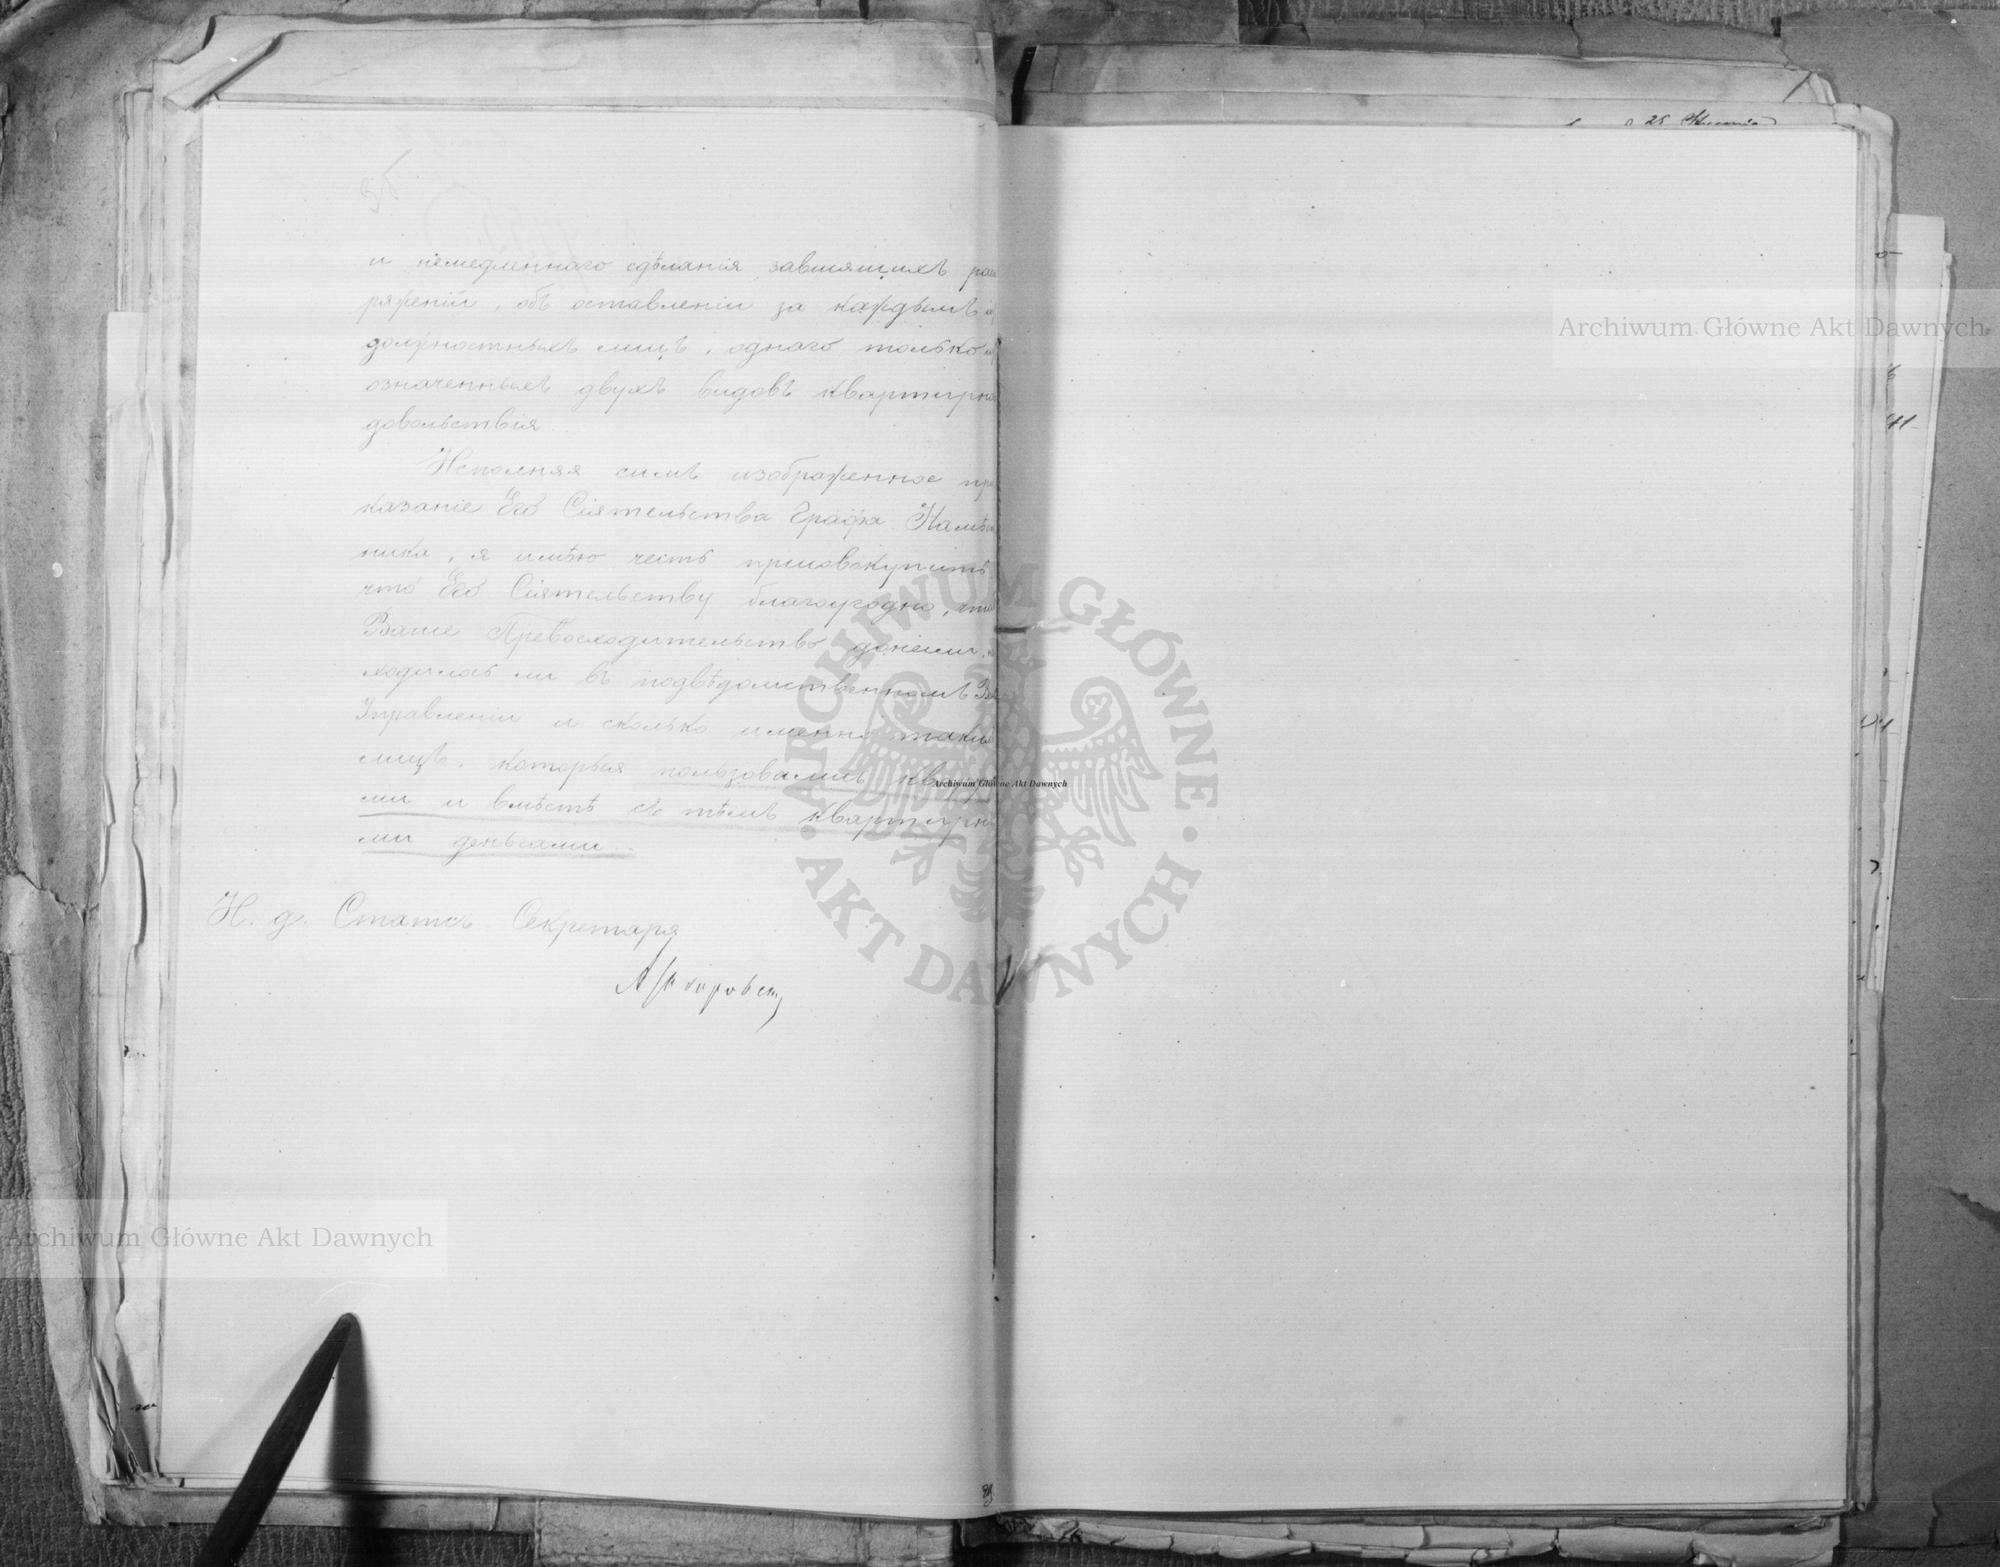 и немедленнаго сдѣланія зависящихъ рас
ряженій, объ оставленіи за каждымъ
должностныхъ лицъ, однаго только
означенныхъ двухъ видовъ квартирна
довольствія.
Исполняя симъ изображенное пр
казаніе Его Сіятельства Графа Намѣст
ника, я имѣю честь присовокупить
что Его Сіятельству благоугодно, что
Ваше Превосходительство донесли, н
ходилось ли въ подвѣдомственномъ Ва
Управленіи и сколько именно таки
лицъ, которыя пользовались кварт
ми и вмѣстѣ съ тѣмъ квартирн
ми деньгами.
И. д. Статсъ Секретаря
25
Archiwum Główne Akt Dawnych
ARCHIWUM GŁÓWNE · AKT DAWNYCH ·
Archiwum Główne Akt Dawnych
Archiwum Główne Akt Dawnych